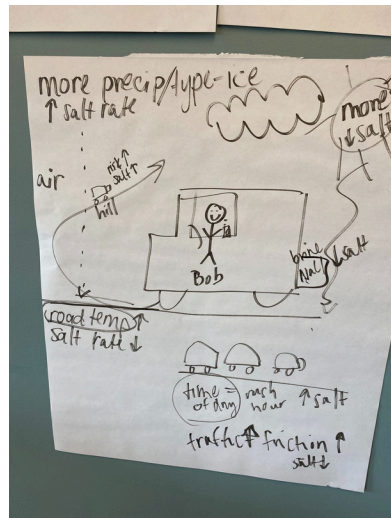 more precip/type-ice
↑ salt rate
more
↓ salt
air
risk↑
salt↑
hill
Bob
brine
NaCl
↓ salt
road temp ↑
salt rate ↓
time = rush
of day hour ↑ salt
traffic↑ friction ↑
salt↓